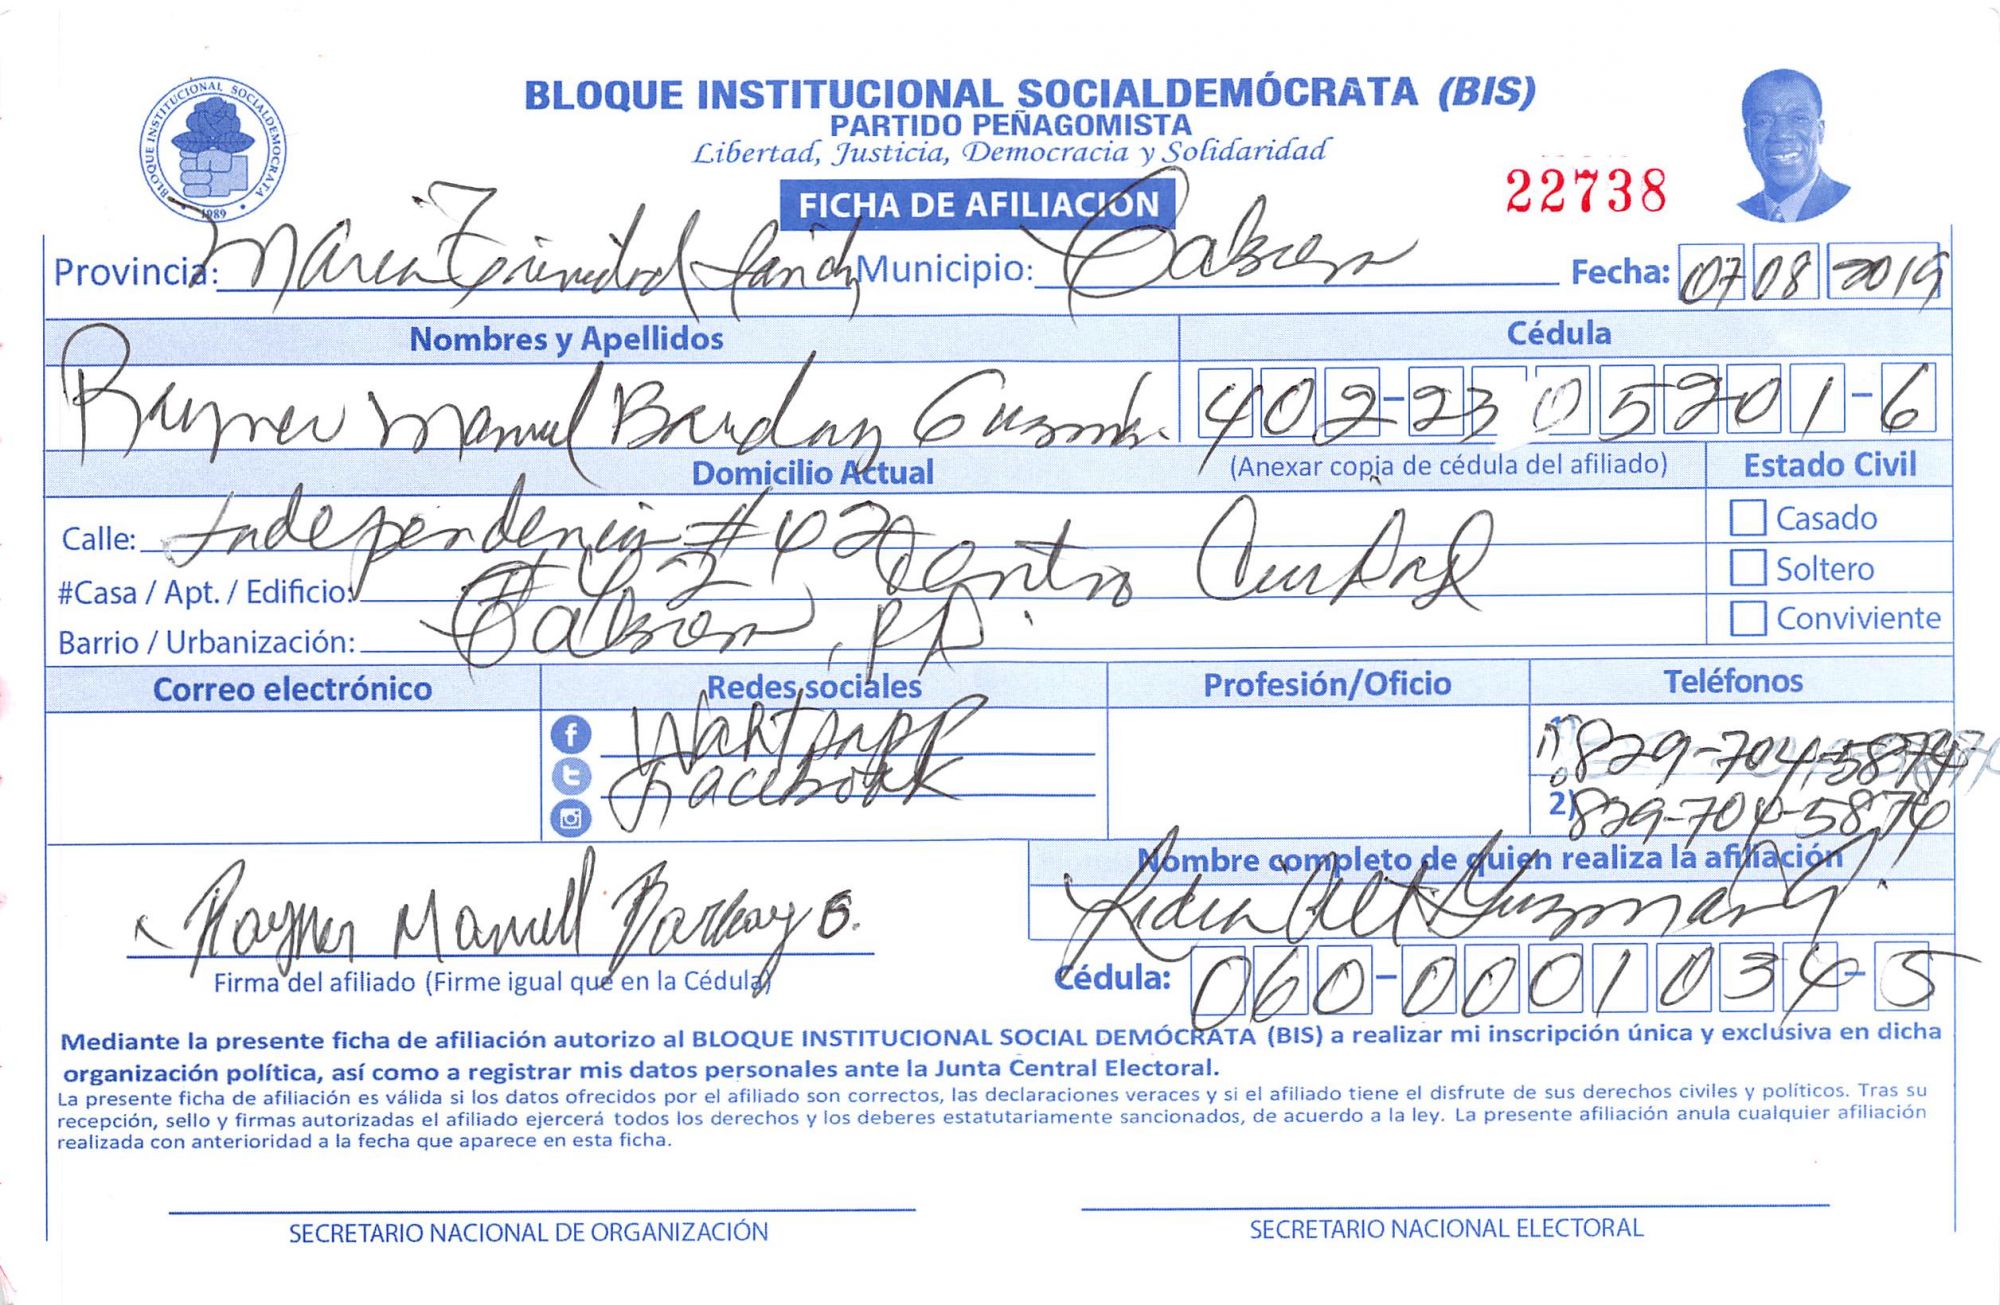 BLOQUE INSTITUCIONAL SOCIALDEMÓCRATA (BIS)
BLOQUE INSTITUCIONAL SOCIALDEMOCRATA
1989
PARTIDO PEÑAGOMISTA
Libertad, Justicia, Democracia y Solidaridad
FICHA DE AFILIACIÓN
22738
Provincia: Maria Trinidad Sanch Municipio: Cabrera Fecha: 07 08 2019
Nombres y Apellidos Cédula
Rayner Manuel Guzmán 402-2305201-6
Domicilio Actual (Anexar copia de cédula del afiliado) Estado Civil
Calle: Independencia #42 Casado
#Casa / Apt. / Edificio: #42 Centro Soltero
Barrio / Urbanización: Cabrera, RD. Conviviente
Correo electrónico Redes sociales Profesión/Oficio Teléfonos
Whatsapp 1) 829-704-5874
Facebook 2) 829-704-5874
Nombre completo de quien realiza la afiliación
Rayner Manuell Barkay G. Guzmán
Firma del afiliado (Firme igual que en la Cédula) Cédula: 060-0001034-5
Mediante la presente ficha de afiliación autorizo al BLOQUE INSTITUCIONAL SOCIAL DEMÓCRATA (BIS) a realizar mi inscripción única y exclusiva en dicha
organización política, así como a registrar mis datos personales ante la Junta Central Electoral.
La presente ficha de afiliación es válida si los datos ofrecidos por el afiliado son correctos, las declaraciones veraces y si el afiliado tiene el disfrute de sus derechos civiles y políticos. Tras su
recepción, sello y firmas autorizadas el afiliado ejercerá todos los derechos y los deberes estatutariamente sancionados, de acuerdo a la ley. La presente afiliación anula cualquier afiliación
realizada con anterioridad a la fecha que aparece en esta ficha.
SECRETARIO NACIONAL DE ORGANIZACIÓN SECRETARIO NACIONAL ELECTORAL